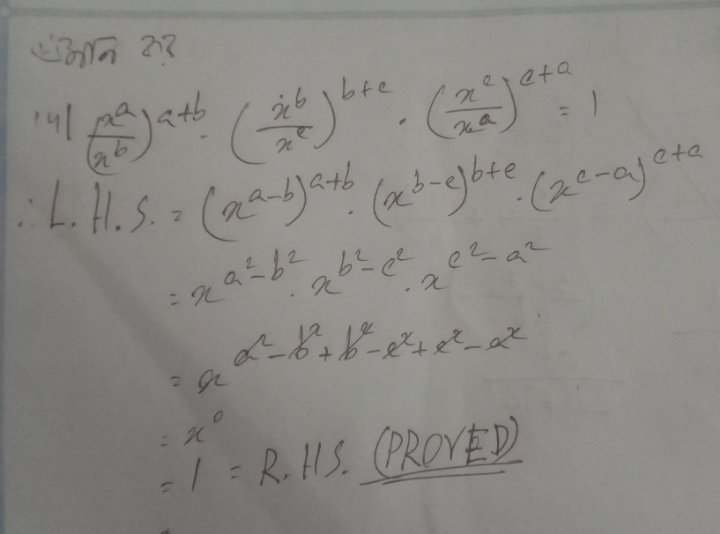 প্রমাণ কর
14| (x^a/x^b)^a+b · (x^b/x^c)^b+c · (x^c/x^a)^c+a = 1
∴ L.H.S. = (x^a-b)^a+b · (x^b-c)^b+c · (x^c-a)^c+a
= x^a²-b² · x^b²-c² · x^c²-a²
= x^a²-b²+b²-c²+c²-a²
= x^0
= 1 = R.H.S. (PROVED)